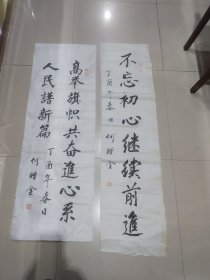 不忘初心继续前進
丁酉年春日 何時金
高举旗帜共奋進心系
人民譜新篇 丁酉年春日
何時金